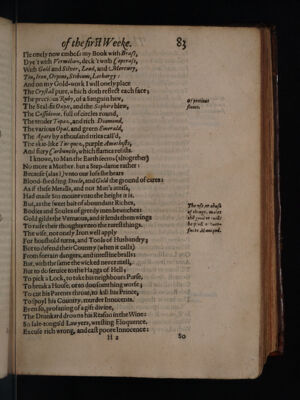 of the first Weeke. 83
I'le onely now embosse my Book with Brass,
Dye't with Vermilion, deck't with Coperass,
With Gold and Silver, Lead, and Mercury,
Tin, Iron, Orpine, Stibium, Lethargy:
And on my Gold-work I will onely place
The Crystall pure, which doth reflect each face;
The precious Ruby, of a Sanguin hew,
The Seal-fit Onyx, and the Saphire blew,
The Cassidonie, full of circles round,
The tender Topaz, and rich Diamond,
The various Opal, and green Emerald,
The Agate by a thousand titles call'd,
The skie-like Turquez, purple Amethysts,
And fiery Carbuncle, which flames resists.
I know, to Man the Earth seems (altogether)
No more a Mother, but a Step-dame rather:
Because (alas!) unto our losse she bears
Blood-shedding Steele, and Gold the ground of cares:
As if these Metalls, and not Man's amiss,
Had made Sin mount unto the height it is.
But, as the sweet bait of aboundant Riches,
Bodies and Soules of greedy men bewitches:
Gold gilds the Vertuous, and it lends them wings
To raise their thoughts unto the rarest things.
The wise, not onely Iron well apply
For houshold turns, and Tools of Husbandry;
But to defend their Country (when it calls)
From forrain dangers, and intestine bralls:
But, with the same the wicked never mell,
But to do service to the Haggs of Hell;
To pick a Lock, to take his neighbours Purse,
To break a House, or to doo something worse;
To cut his Parents throat, to kill his Prince,
To spoyl his Country, murder Innocents.
Even so, profaning of a gift divine,
The Drunkard drowns his Reason in the Wine:
So sale-tongu'd Lawyers, wresting Eloquence,
Excuse rich wrong, and cast poore Innocence:
H 2 So
Of precious
stones.
The use or abuse
of things, makes